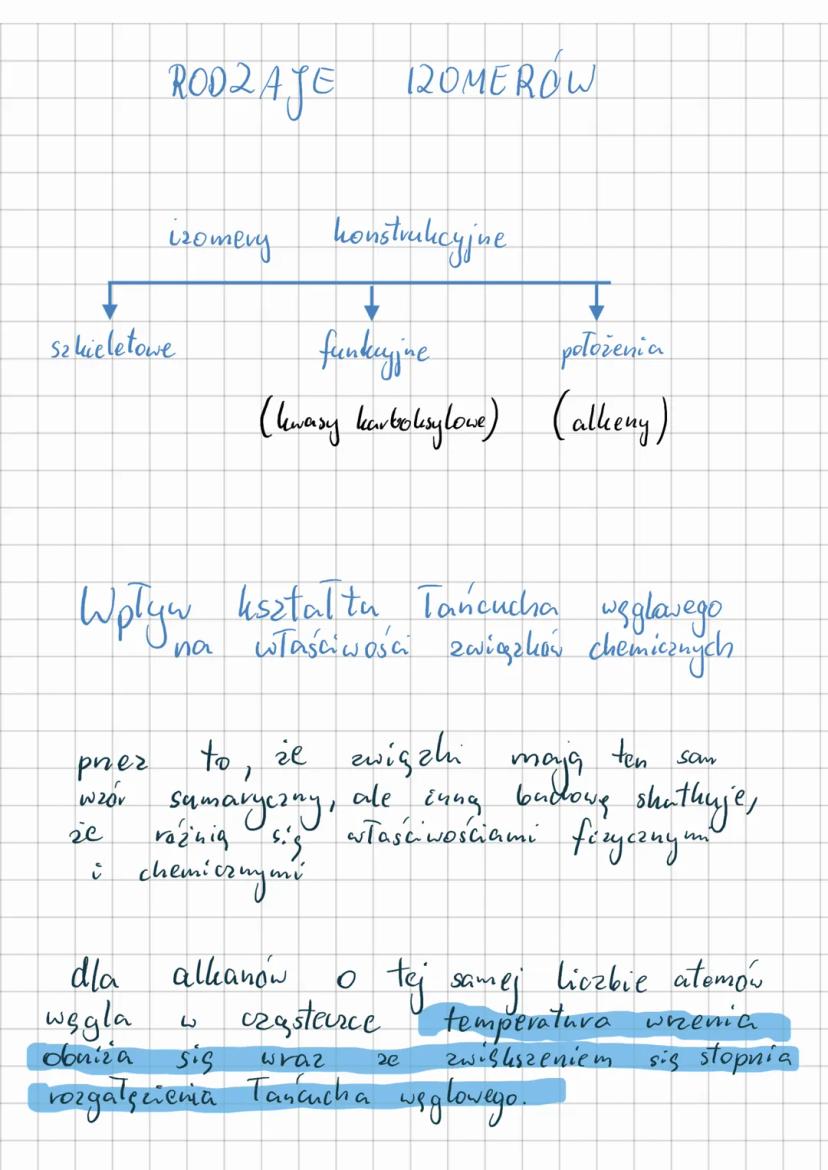 RODZAJE IZOMERÓW
izomery konstrukcyjne
szkieletowe funkcyjne położenia
(kwasy karboksylowe) (alkeny)
Wpływ kształtu łańcucha węglowego
na właściwości związków chemicznych
przez to, że związki mają ten sam
wzór sumaryczny, ale inną budowę skutkuje,
że różnią się właściwościami fizycznymi
i chemicznymi
dla alkanów o tej samej liczbie atomów
węgla w cząsteczce temperatura wrzenia
obniża się wraz ze zwiększeniem się stopnia
rozgałęzienia łańcucha węglowego.